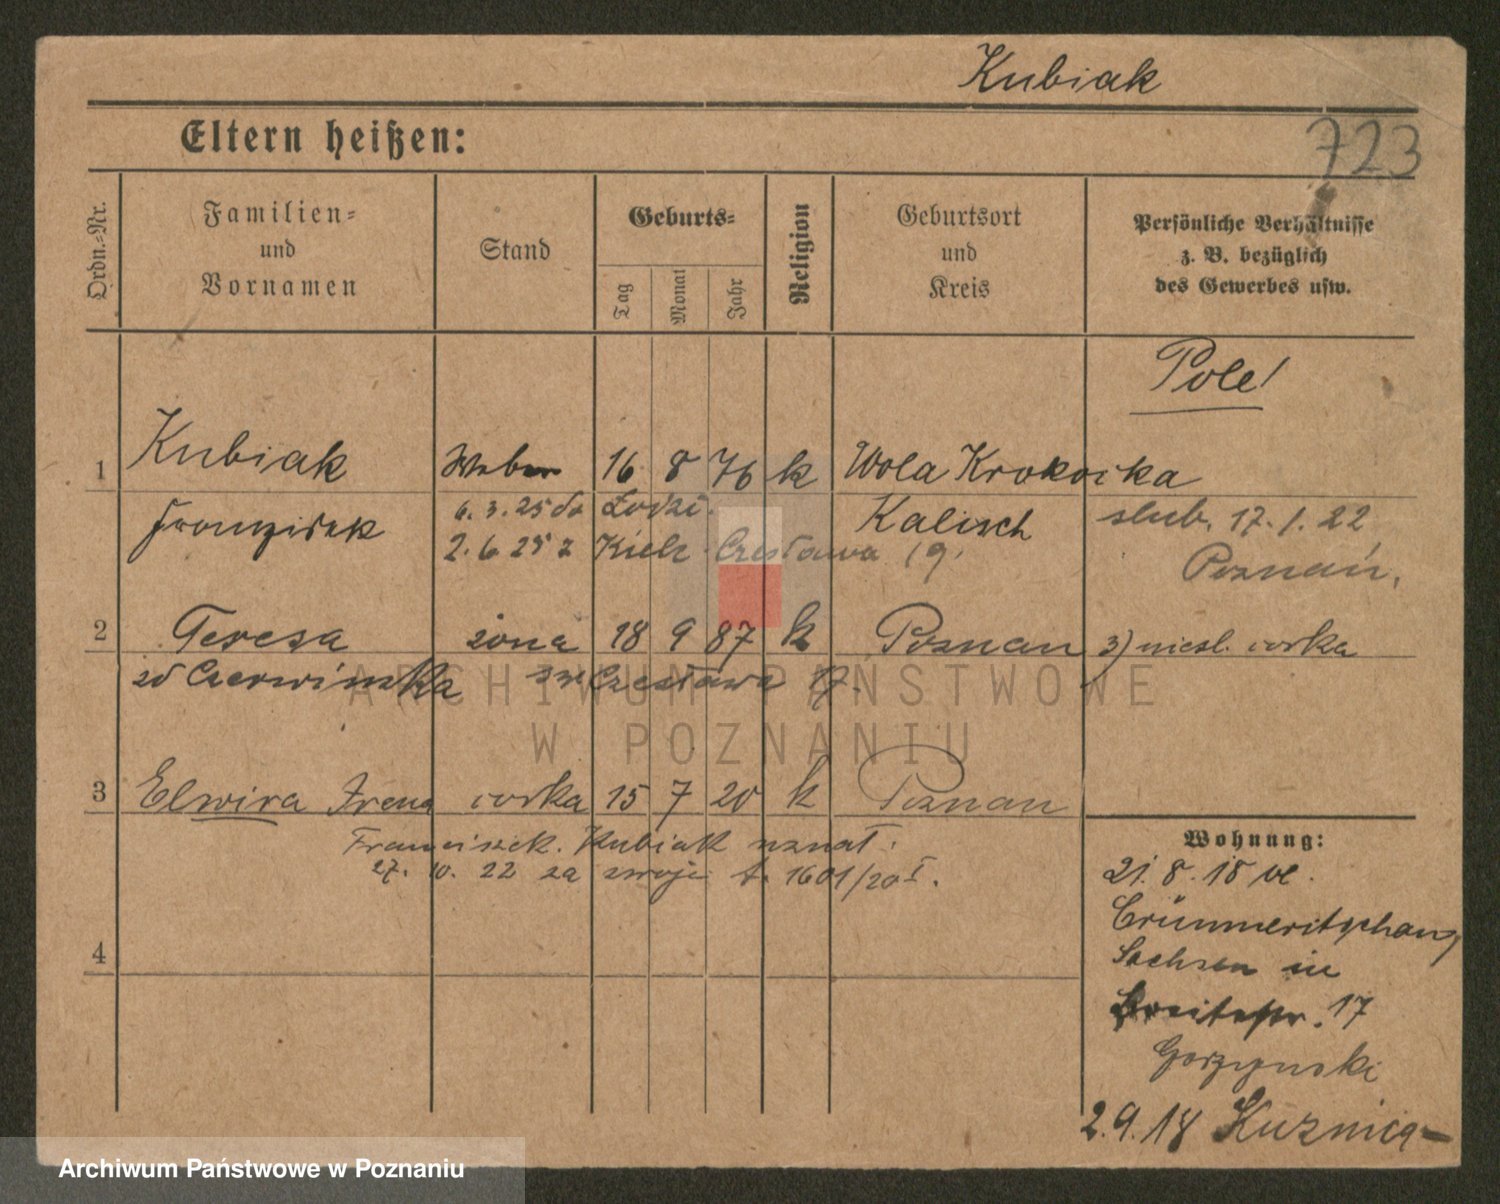 Kubiak
Eltern heißen:
723
Ordn.-Nr.
Familien-
und
Vornamen
Stand
Geburts-
Tag
Monat
Jahr
Religion
Geburtsort
und
Kreis
Persönliche Verhältnisse
z. B. bezüglich
des Gewerbes usw.
Pole!
1 Kubiak Weber 16 8 76 k Wola Krokocka
Franziszek Kalisch
6. 3. 25 do Łodzi.
2. 6. 25 z Kielc Czesława 19.
slub. 17. 1. 22
Poznań,
2 Teresa żona 18 9 87 k Poznan 3) niesl. corka
zd Czerwinska Czesława 17.
3 Elwira Irena corka 15 7 20 k Poznan
Franciszek. Kubiak uznał.
27. 10. 22 za swoje 1601/20 I.
4
Wohnung:
21. 8. 18 v.
Sachsen in
Breitestr. 17
Gorzynski
2. 9. 18 Kuznica
ARCHIWUM PAŃSTWOWE
W POZNANIU
Archiwum Państwowe w Poznaniu